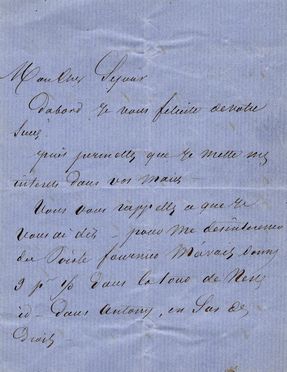 Mon cher Sejour
d'abord je vous felicite de votre
Succ
puis permettez que je mette mes
interets dans vos mains —
Vous vous rappellez ce que je
vous ai dit — pour me desinteresser
du Fournier m'avait donné
2 p% dans la tour de Nesle
id — dans Antony, en Sus des
Droits